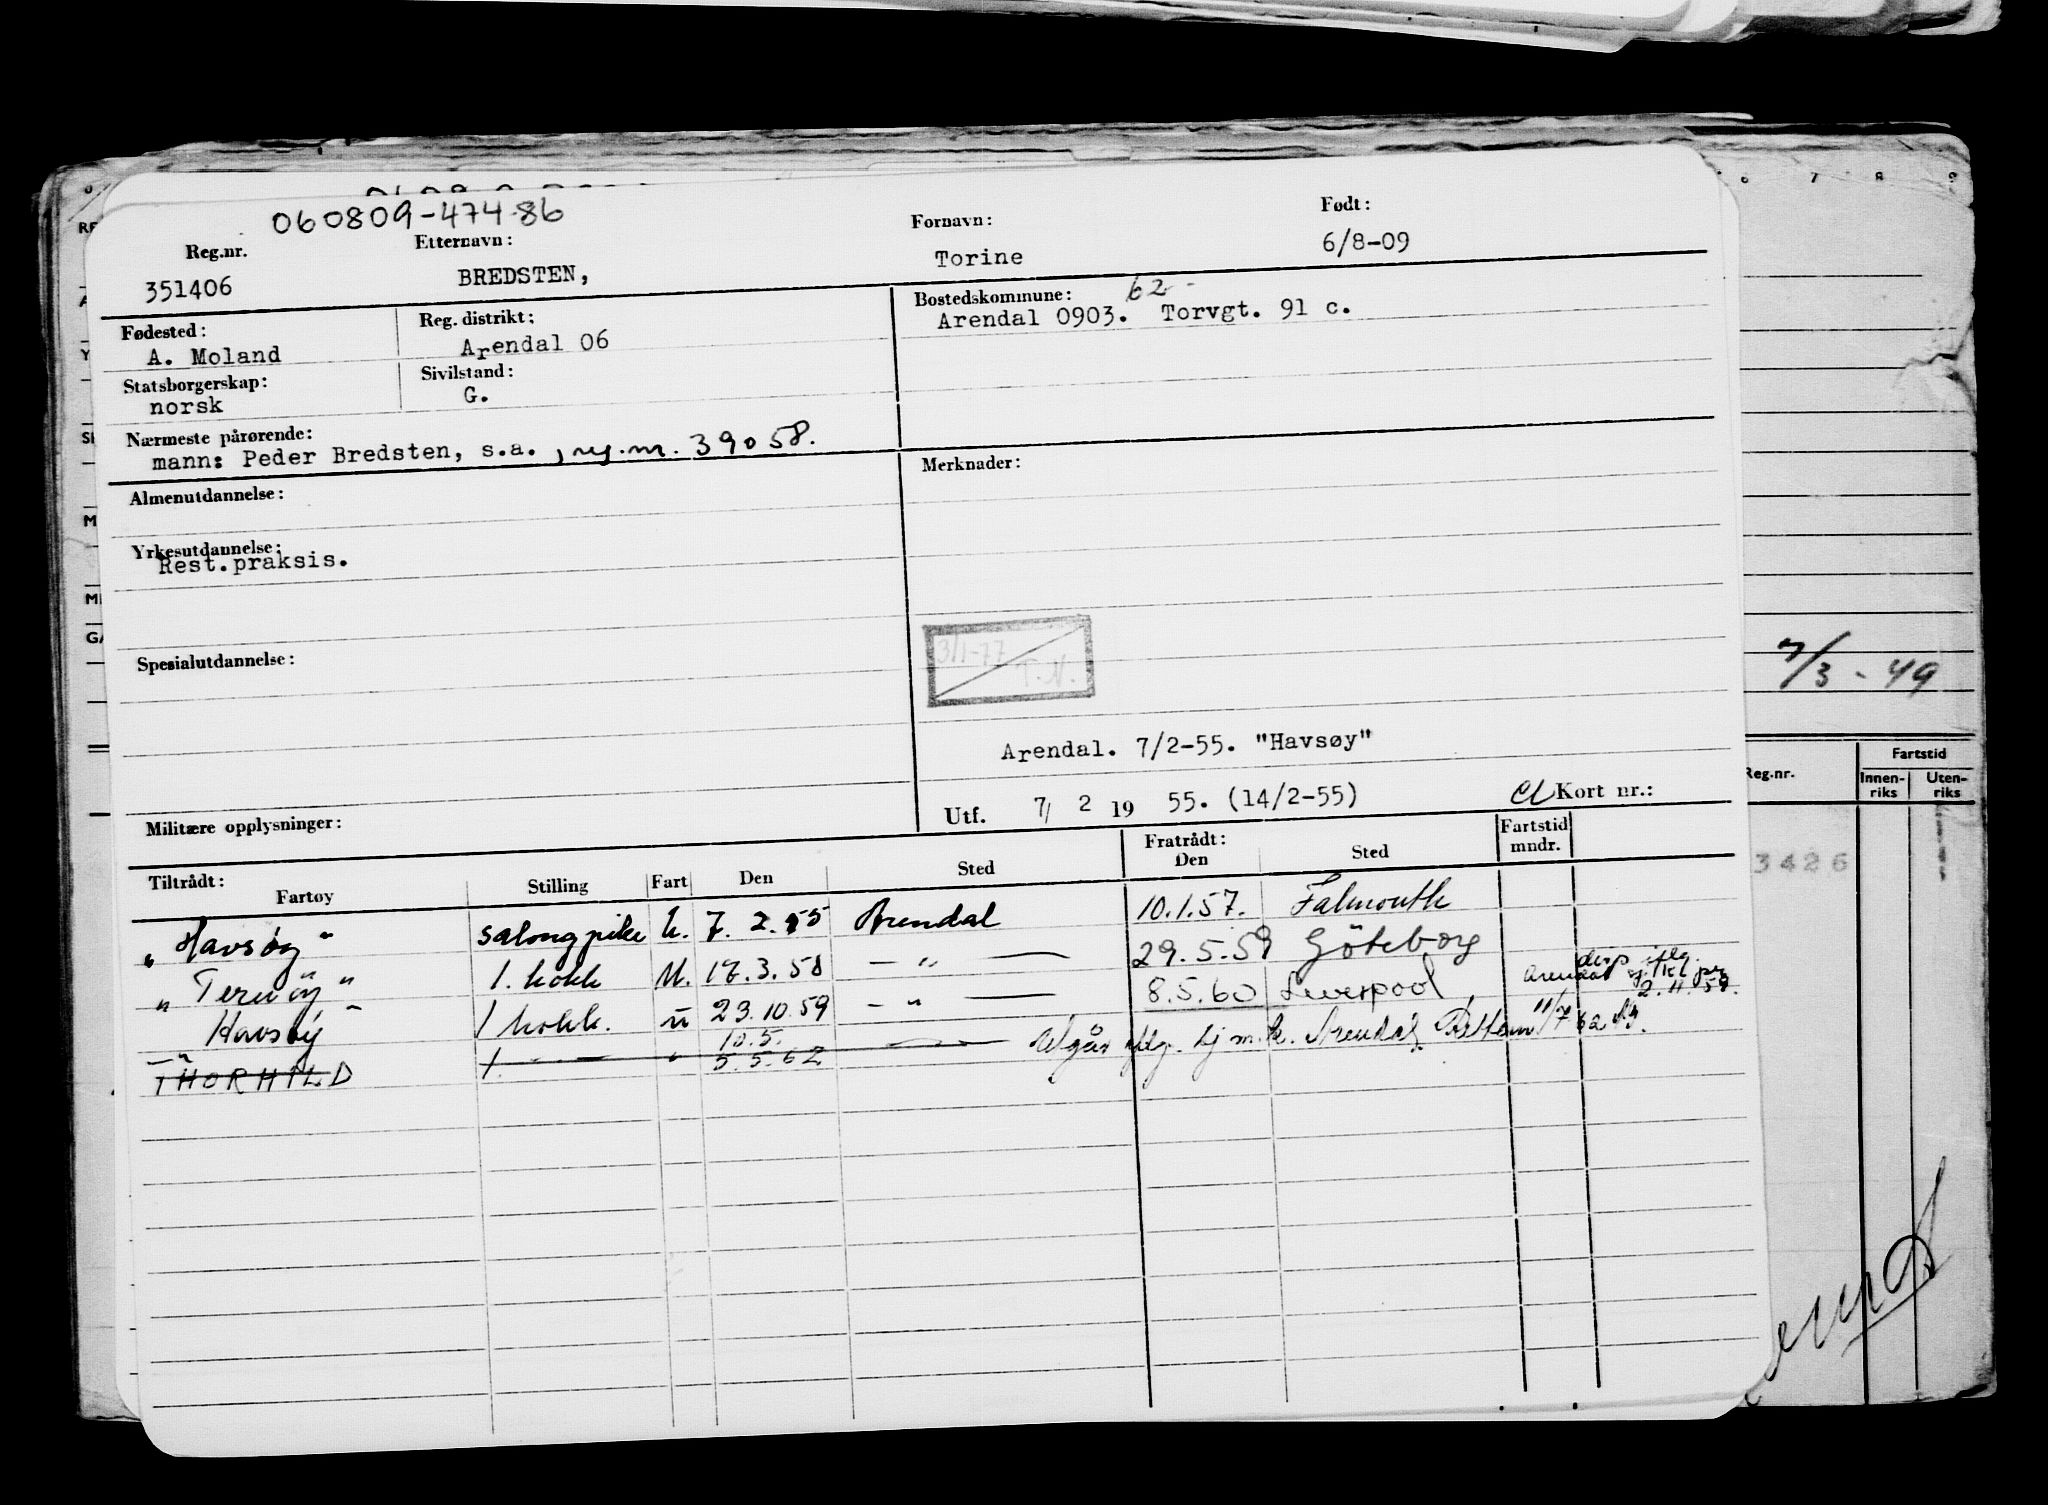 060809-47486
Reg.nr. Etternavn: Fornavn: Født:
351406 BREDSTEN, Torine 6/8-09
Fødested: Reg. distrikt: Bostedskommune: 62-
A. Moland Arendal 06 Arendal 0903. Torvgt. 91 c.
Statsborgerskap: Sivilstand:
norsk G.
Nærmeste pårørende:
mann: Peder Bredsten, s.a. , reg.nr. 39058.
Almenutdannelse: Merknader:
Yrkesutdannelse:
Rest.praksis.
3/1-77
T.N.
Spesialutdannelse:
Arendal. 7/2-55. "Havsøy"
Utf. 7/ 2 19 55. (14/2-55) Kort nr.:
Militære opplysninger:
Tiltrådt: Fratrådt: Fartstid
Fartøy Stilling Fart Den Sted Den Sted mndr.
"Havsøy" salongpike U. 7. 2. 55 Arendal 10.1.57. Falmouth
"Ternøy" 1. kokk U. 17.3.58 — " — 29.5.59 Göteborg
disp iflg.
Havsøy" 1 kokk. u 23.10.59 — " — 8.5.60 Liverpool Arendal 2.11.59.
10.5.
THORHILD 1. — " — " 5.5.62 Utgår iflg. sjm.k. Arendal 11/7 62
7 8 9
7/3 - 49
Reg.nr. Fartstid
Innen-riks Uten-riks
3426